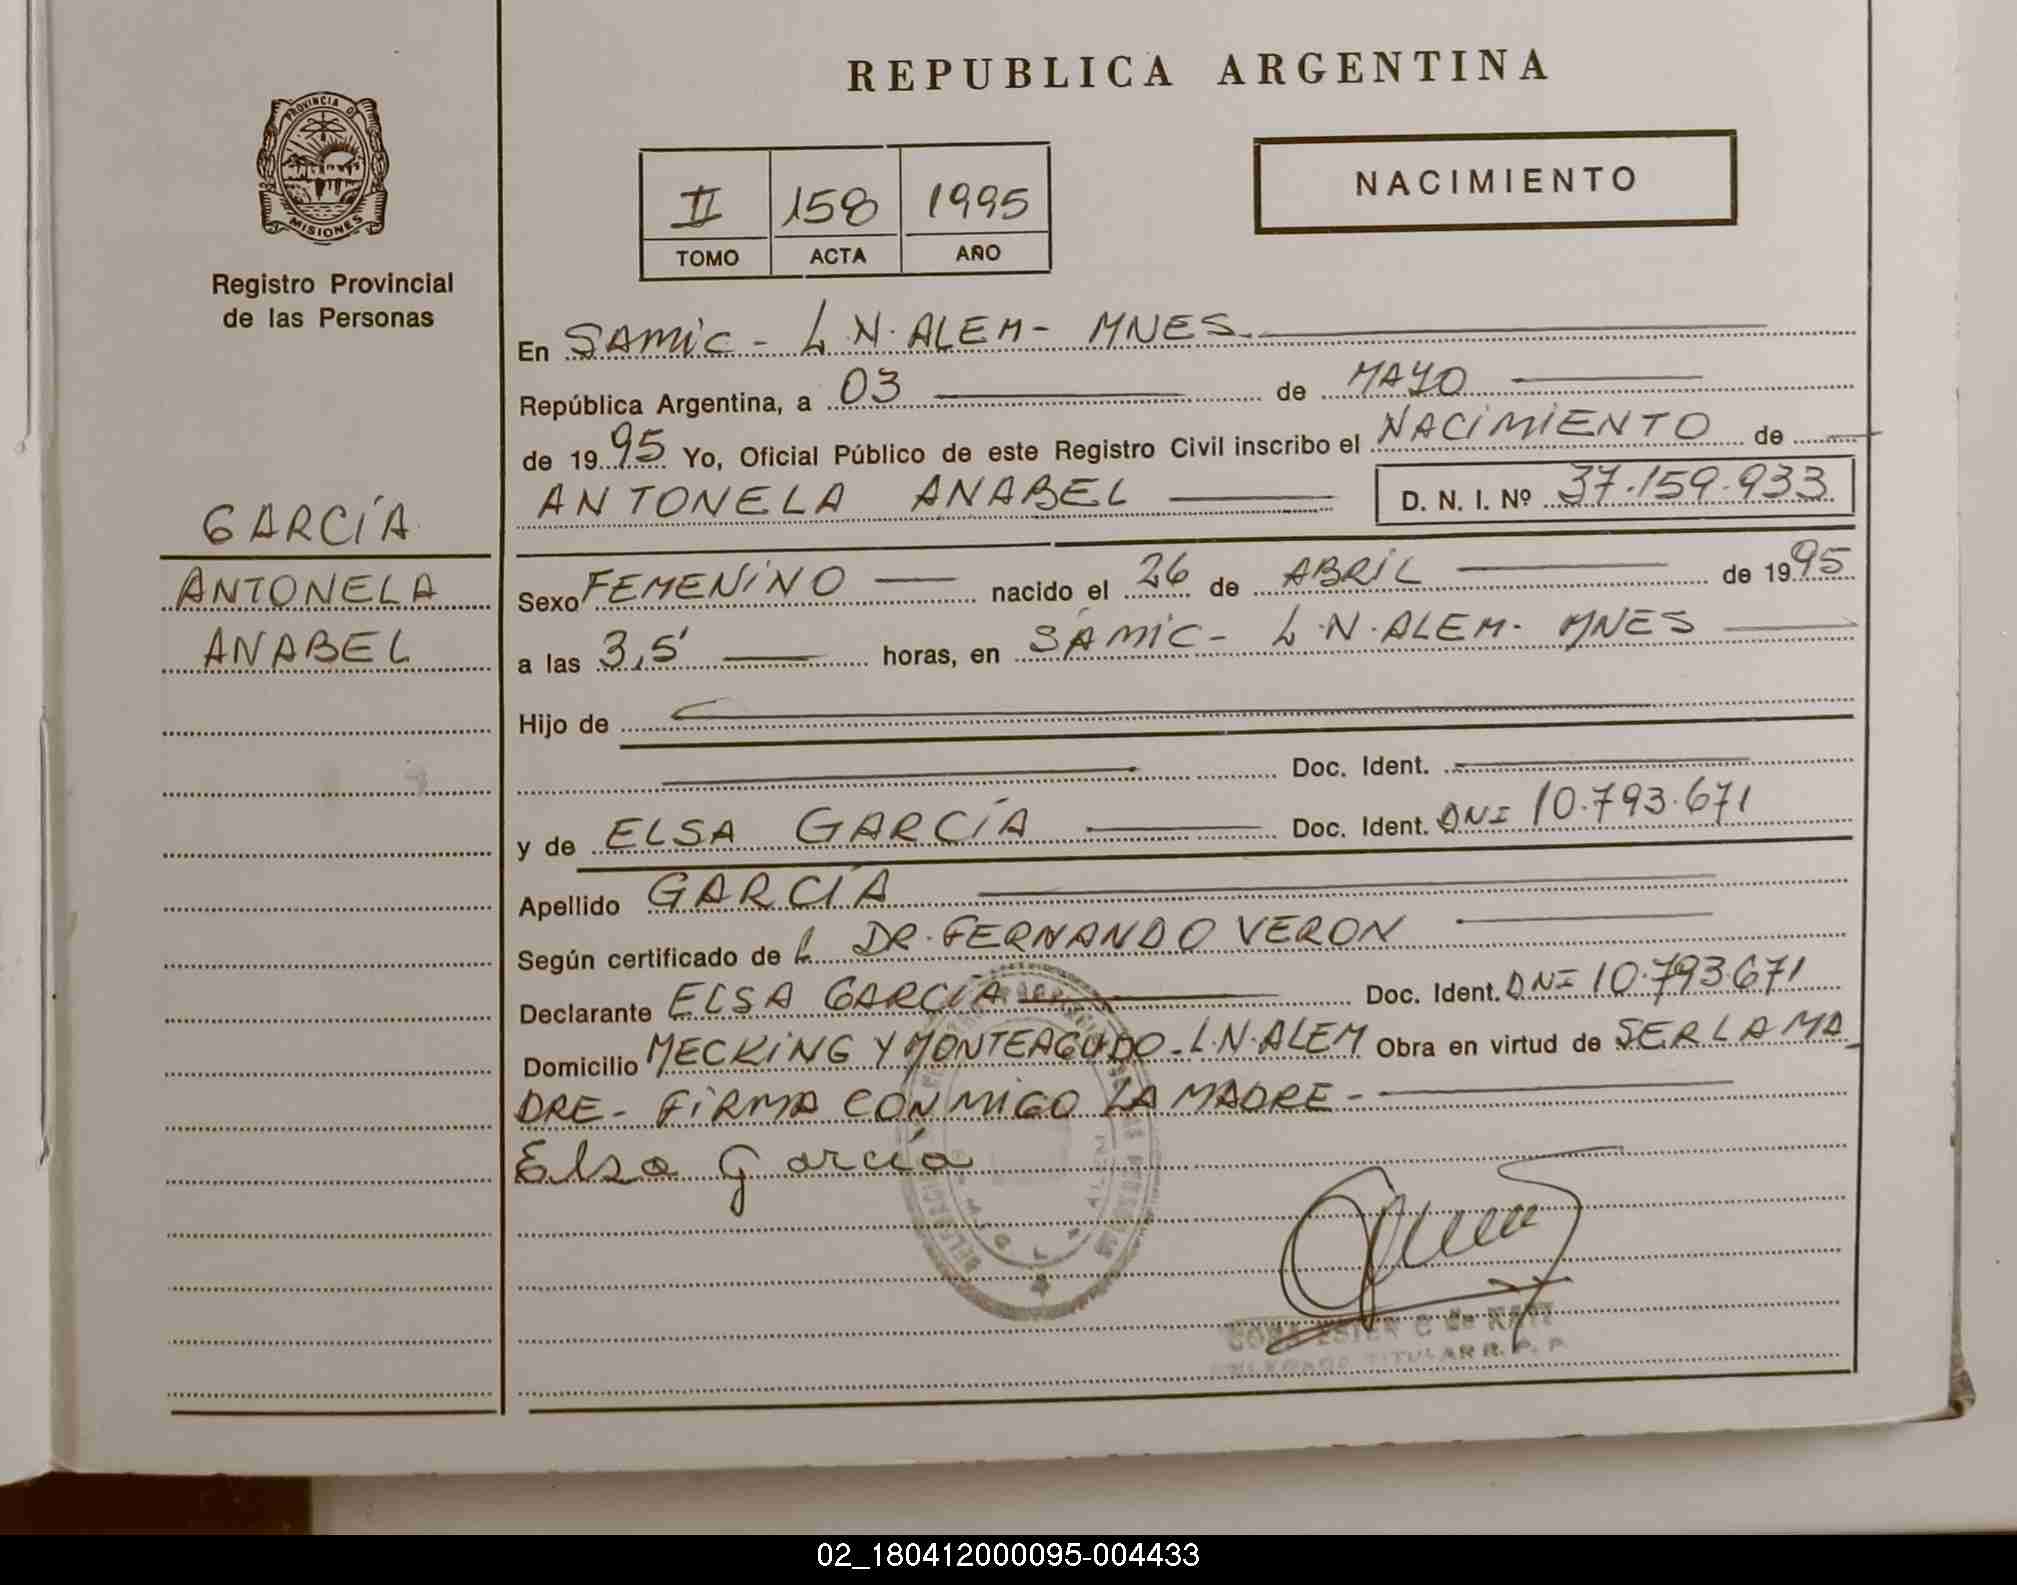 REPUBLICA ARGENTINA
PROVINCIA DE
MISIONES
Registro Provincial
de las Personas
II 158 1995
TOMO ACTA AÑO
NACIMIENTO
En SAMIC - L.N. ALEM - MNES.
República Argentina, a 03 de MAYO
de 1995 Yo, Oficial Público de este Registro Civil inscribo el NACIMIENTO de
ANTONELA ANABEL D. N. I. Nº 37.159.933
GARCÍA
ANTONELA
ANABEL
Sexo FEMENINO nacido el 26 de ABRIL de 1995
a las 3,5' horas, en SAMIC - L.N. ALEM - MNES
Hijo de
Doc. Ident.
y de ELSA GARCÍA Doc. Ident. DNI 10.793.671
Apellido GARCÍA
Según certificado de L DR. FERNANDO VERON
Declarante ELSA GARCÍA Doc. Ident. DNI 10.793.671
Domicilio MECKING Y MONTEAGUDO - L.N. ALEM Obra en virtud de SER LA MA
DRE - FIRMA CONMIGO LA MADRE -
Elsa García
TITULAR R. P. P.
02_180412000095-004433